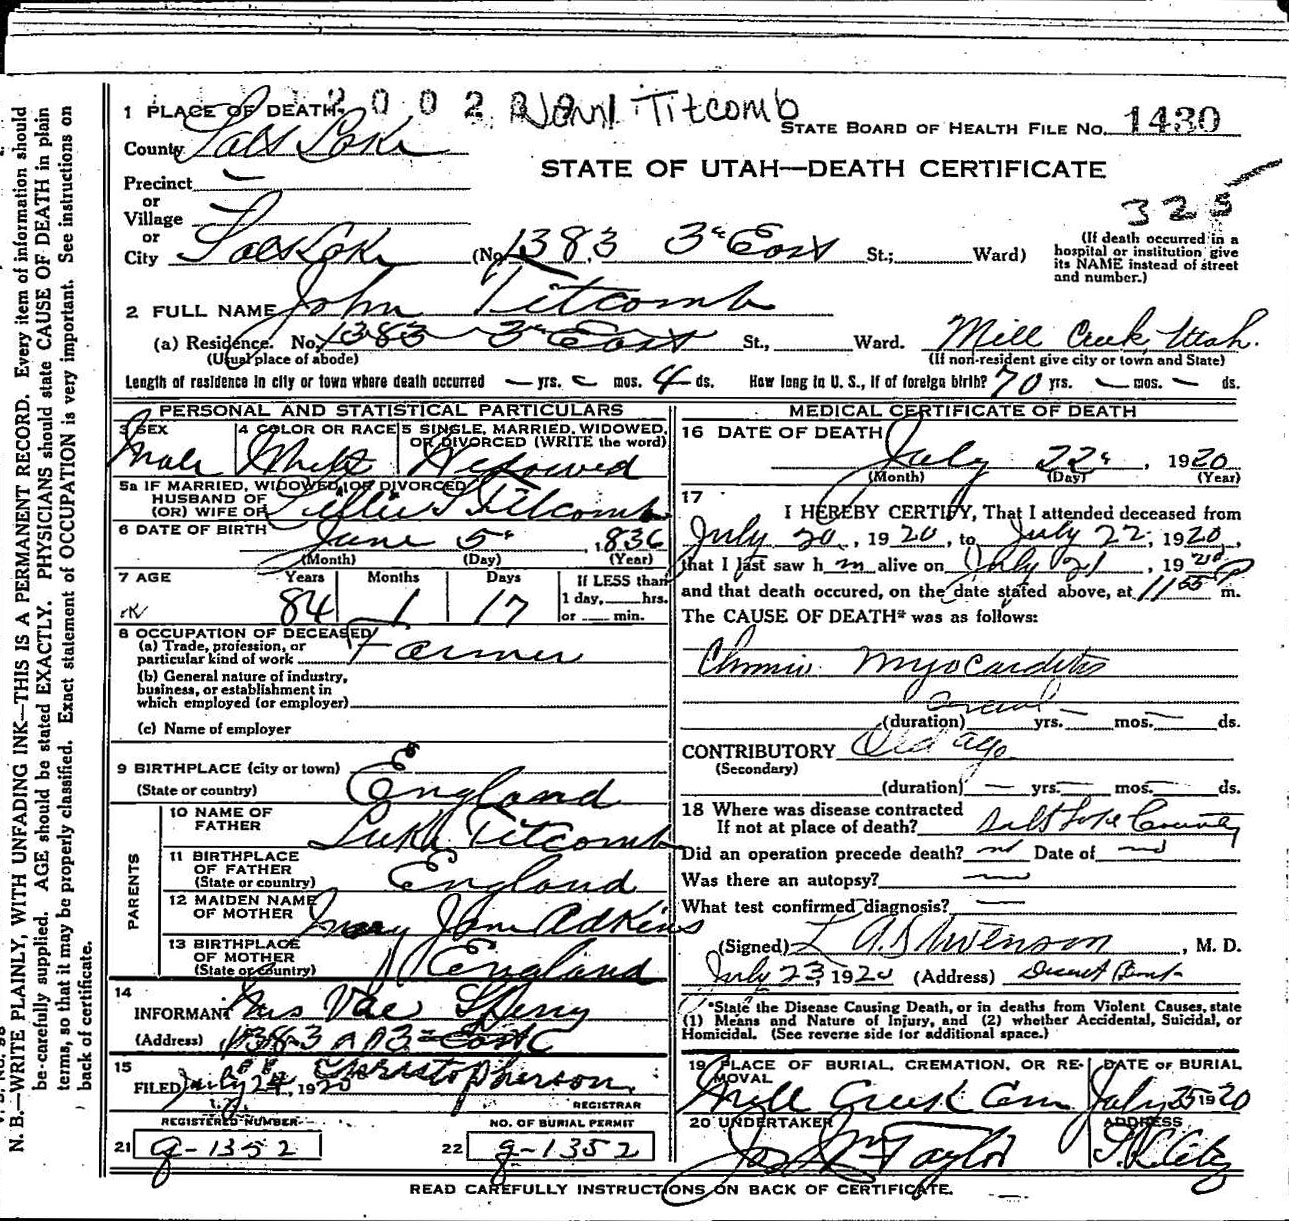 N. B.—WRITE PLAINLY, WITH UNFADING INK—THIS IS A PERMANENT RECORD. Every item of information should
be carefully supplied. AGE should be stated EXACTLY. PHYSICIANS should state CAUSE OF DEATH in plain
terms, so that it may be properly classified. Exact statement of OCCUPATION is very important. See instructions on
back of certificate.
2002 Titcomb
1 PLACE OF DEATH
STATE BOARD OF HEALTH FILE No. 1430
County Salt Lake
STATE OF UTAH—DEATH CERTIFICATE
Precinct
or
Village
325
or
City Salt Lake (No. 1383 3d East St.; Ward)
(If death occurred in a
hospital or institution give
its NAME instead of street
and number.)
2 FULL NAME John Titcomb
(a) Residence. No. 1383 3d East St., Ward. Mill Creek, Utah.
(Usual place of abode) (If non-resident give city or town and State)
Length of residence in city or town where death occurred — yrs. — mos. 4 ds. How long in U. S., if of foreign birth? 70 yrs. — mos. — ds.
PERSONAL AND STATISTICAL PARTICULARS
3 SEX
Male
4 COLOR OR RACE
White
5 SINGLE, MARRIED, WIDOWED,
OR DIVORCED (WRITE the word)
Widowed
5a IF MARRIED, WIDOWED, OR DIVORCED
HUSBAND OF
(OR) WIFE OF Titcomb
6 DATE OF BIRTH June 5", 1836
(Month) (Day) (Year)
7 AGE Years Months Days If LESS than
84 1 17 1 day, hrs.
or min.
8 OCCUPATION OF DECEASED
(a) Trade, profession, or
particular kind of work Farmer
(b) General nature of industry,
business, or establishment in
which employed (or employer)
(c) Name of employer
9 BIRTHPLACE (city or town)
(State or country) England
PARENTS
10 NAME OF
FATHER Luke Titcomb
11 BIRTHPLACE
OF FATHER
(State or country) England
12 MAIDEN NAME
OF MOTHER Mary Jane Adkins
13 BIRTHPLACE
OF MOTHER
(State or country) England
14
INFORMANT Mrs Sperry
(Address) 1383 3d East
15
FILED July 24, 1920 Christopherson
REGISTRAR
REGISTERED NUMBER NO. OF BURIAL PERMIT
21 g-1352 22 g-1352
MEDICAL CERTIFICATE OF DEATH
16 DATE OF DEATH
July 22", 1920
(Month) (Day) (Year)
17
I HEREBY CERTIFY, That I attended deceased from
July 20, 1920, to July 22, 1920,
that I last saw h m alive on July 21, 19
and that death occured, on the date stated above, at 11 55 P m.
The CAUSE OF DEATH* was as follows:
Chronic Myocarditis
(duration) Several yrs. — mos. — ds.
CONTRIBUTORY Old age
(Secondary)
(duration) — yrs. — mos. — ds.
18 Where was disease contracted
If not at place of death? Salt Lake County
Did an operation precede death? Date of
Was there an autopsy?
What test confirmed diagnosis?
(Signed) L A Stevenson, M. D.
July 23, 1920 (Address) Deseret Bank
*State the Disease Causing Death, or in deaths from Violent Causes, state
(1) Means and Nature of Injury, and (2) whether Accidental, Suicidal, or
Homicidal. (See reverse side for additional space.)
19 PLACE OF BURIAL, CREMATION, OR RE-
MOVAL
Mill Creek Cem
DATE OF BURIAL
July 25 1920
20 UNDERTAKER
Jos Wm Taylor
ADDRESS
S.L. City
READ CAREFULLY INSTRUCTIONS ON BACK OF CERTIFICATE.